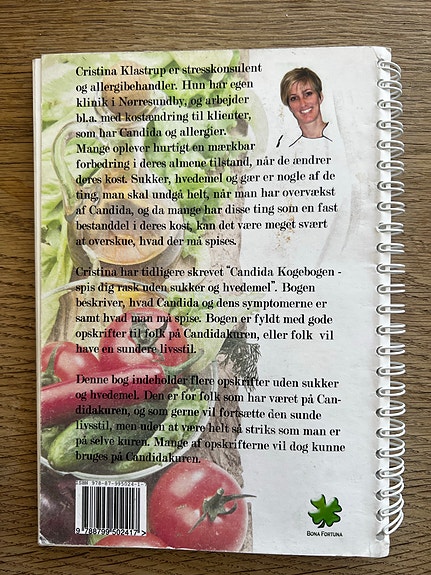 Cristina Klastrup er stresskonsulent
og allergibehandler. Hun har egen
klinik i Nørresundby, og arbejder
bl.a. med kostændring til klienter,
som har Candida og allergier.
Mange oplever hurtigt en mærkbar
forbedring i deres almene tilstand, når de ændrer
deres kost. Sukker, hvedemel og gær er nogle af de
ting, man skal undgå helt, når man har overvækst
af Candida, og da mange har disse ting som en fast
bestanddel i deres kost, kan det være meget svært
at overskue, hvad der må spises.
Cristina har tidligere skrevet "Candida Kogebogen -
spis dig rask uden sukker og hvedemel". Bogen
beskriver, hvad Candida og dens symptomerne er
samt hvad man må spise. Bogen er fyldt med gode
opskrifter til folk på Candidakuren, eller folk vil
have en sundere livsstil.
Denne bog indeholder flere opskrifter uden sukker
og hvedemel. Den er for folk som har været på Can-
didakuren, og som gerne vil fortsætte den sunde
livsstil, men uden at være helt så striks som man er
på selve kuren. Mange af opskrifterne vil dog kunne
bruges på Candidakuren.
ISBN 978-87-995024-1-7
9 788799 502417 >
BONA FORTUNA